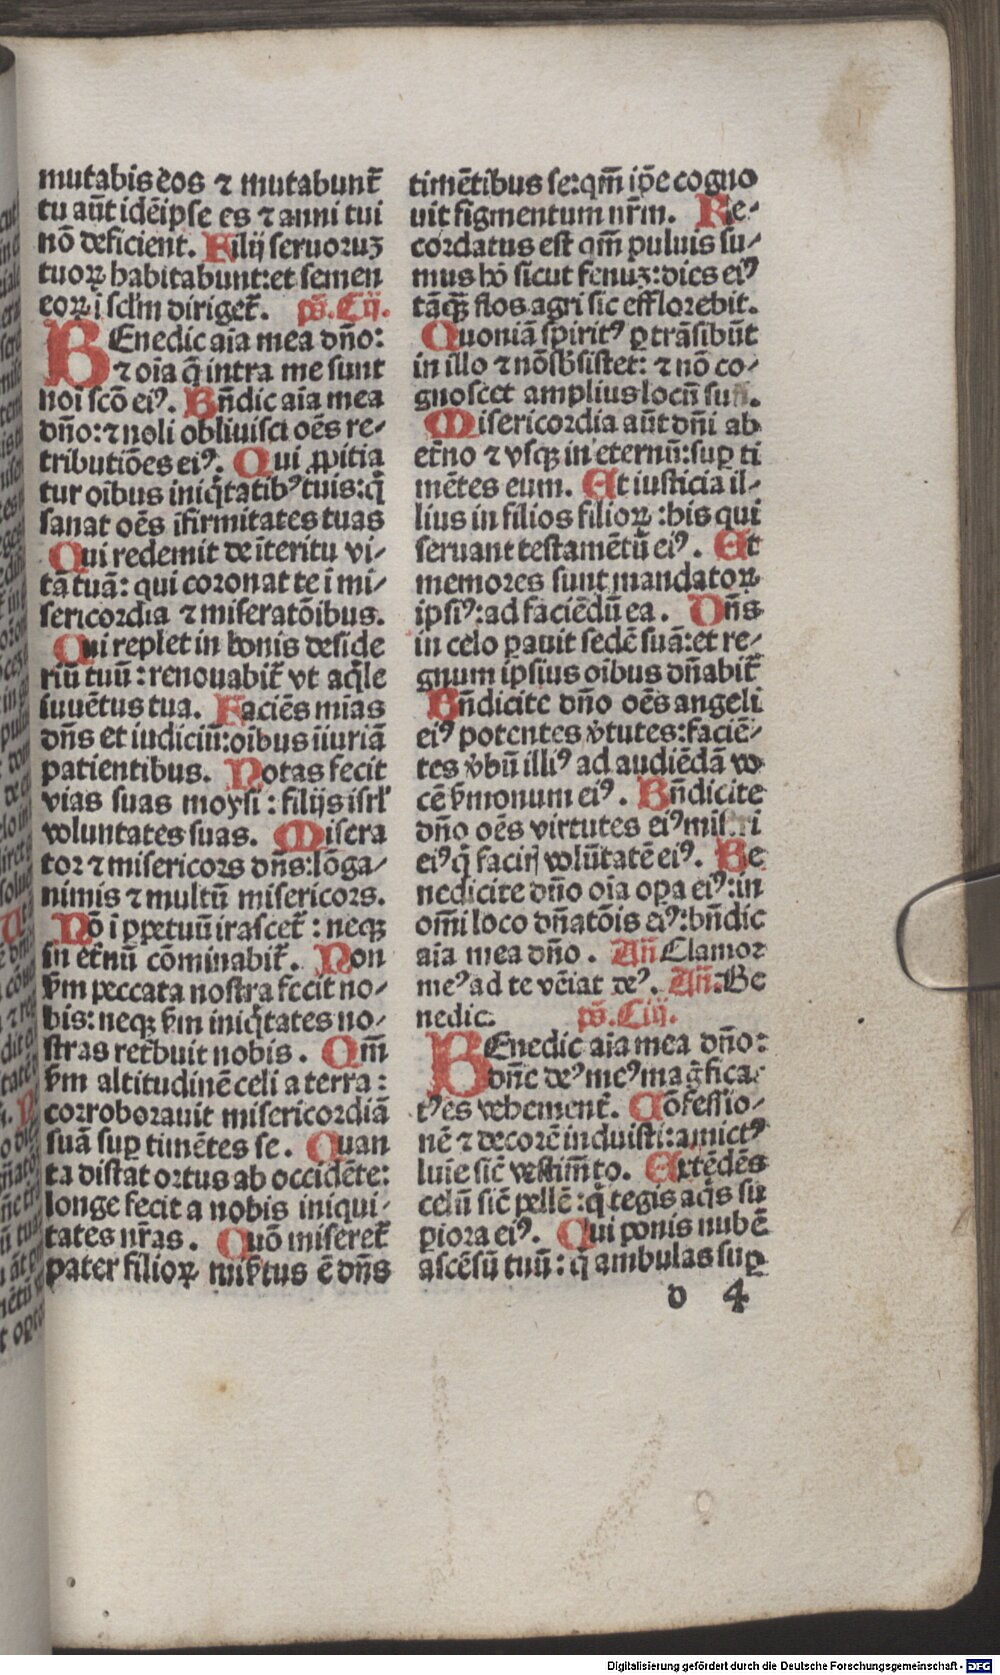 mutabis eos ⁊ mutabunt̃
tu aũt idẽipse es ⁊ anni tui
nõ deficient. Filij seruoruꝫ
tuoꝝ habitabunt:et semen
eoꝝ i scl'm diriget̃. ps̃.Cij.
BEnedic aĩa mea dño:
⁊ oĩa q̃ intra me sunt
noĩ scõ eiꝰ. Bñdic aĩa mea
dño:⁊ noli obliuisci oẽs re⸗
tributiões eiꝰ. Qui ꝓpitia
tur oĩbus iniq̃tatibꝰ tuis:q̃
sanat oẽs ĩfirmitates tuas
Qui redemit de ĩteritu vi⸗
tã tuã: qui coronat te ĩ mi⸗
sericordia ⁊ miseratõibus.
Qui replet in bonis deside
riũ tuũ: renouabit̃ vt aq̃le
iuuẽtus tua. Faciẽs mĩas
dñs et iudiciũ:oĩbus iĩuriã
patientibus. Notas fecit
vias suas moysi: filijs isrl'
voluntates suas. Misera
tor ⁊ misericors dñs:lõga⸗
nimis ⁊ multũ misericors.
Nõ ĩ ꝑpetuũ irascet̃: neqꝫ
in et̃nũ cõminabit̃. Non
ẜm peccata nostra fecit no⸗
bis: neqꝫ ẜm iniq̃tates no⸗
stras ret̃buit nobis. Qm̃
ẜm altitudinẽ celi a terra:
corroborauit misericordiã
suã suꝑ timẽtes se. Quan
ta distat ortus ab occidẽte:
longe fecit a nobis iniqui⸗
tates nr̃as. Quõ miseret̃
pater filioꝝ mis̃tus ẽ dñs
timẽtibus se:qm̃ ip̃e cogno
uit figmentum nr̃m. Re⸗
cordatus est qm̃ puluis su⸗
mus hõ sicut fenuꝫ:dies eiꝰ
tãqꝫ flos agri sic efflorebit.
Quoniã spiritꝰ ꝑtrãsibũt
in illo ⁊ nõ sb̃sistet: ⁊ nõ co⸗
gnoscet amplius locũ suũ.
Misericordia aũt dñi ab
et̃no ⁊ vsqꝫ in eternũ:suꝑ ti
mẽtes eum. Et iusticia il⸗
lius in filios filioꝝ:his qui
seruant testamẽtũ eiꝰ. Et
memores sunt mandatoꝝ
ipsiꝰ:ad faciẽdũ ea. Dñs
in celo parauit sedẽ suã:et re⸗
gnum ipsius oĩbus dñabit̃
Bñdicite dño oẽs angeli
eiꝰ potentes v̾tutes:faciẽ⸗
tes v̾bũ illiꝰ ad audiẽdã vo
cẽ ẜmonum eiꝰ. Bñdicite
dño oẽs virtutes eiꝰ:ministri
eiꝰ q̃ facitis volũtatẽ eiꝰ. Be
nedicite dño oĩa oꝑa eiꝰ:in
om̃i loco dñatõis eiꝰ:bñdic
aĩa mea dño. Añ Clamor
meꝰ ad te vẽiat deꝰ. Añ. Be
nedic. ps̃.Ciij.
BEnedic aĩa mea dño:
dñe deꝰ meꝰ mag̃fica⸗
tꝰ es vehement̃. Cõfessio⸗
nẽ ⁊ decorẽ induisti:amictꝰ
luĩe sic̃ vestim̃to. Extẽdẽs
celũ sic̃ pellẽ:q̃ tegis aq̃s su
ꝑiora eiꝰ. Qui ponis nubẽ
ascẽsũ tuũ: q̃ ambulas suꝑ
d 4
Digitalisierung gefördert durch die Deutsche Forschungsgemeinschaft - DFG